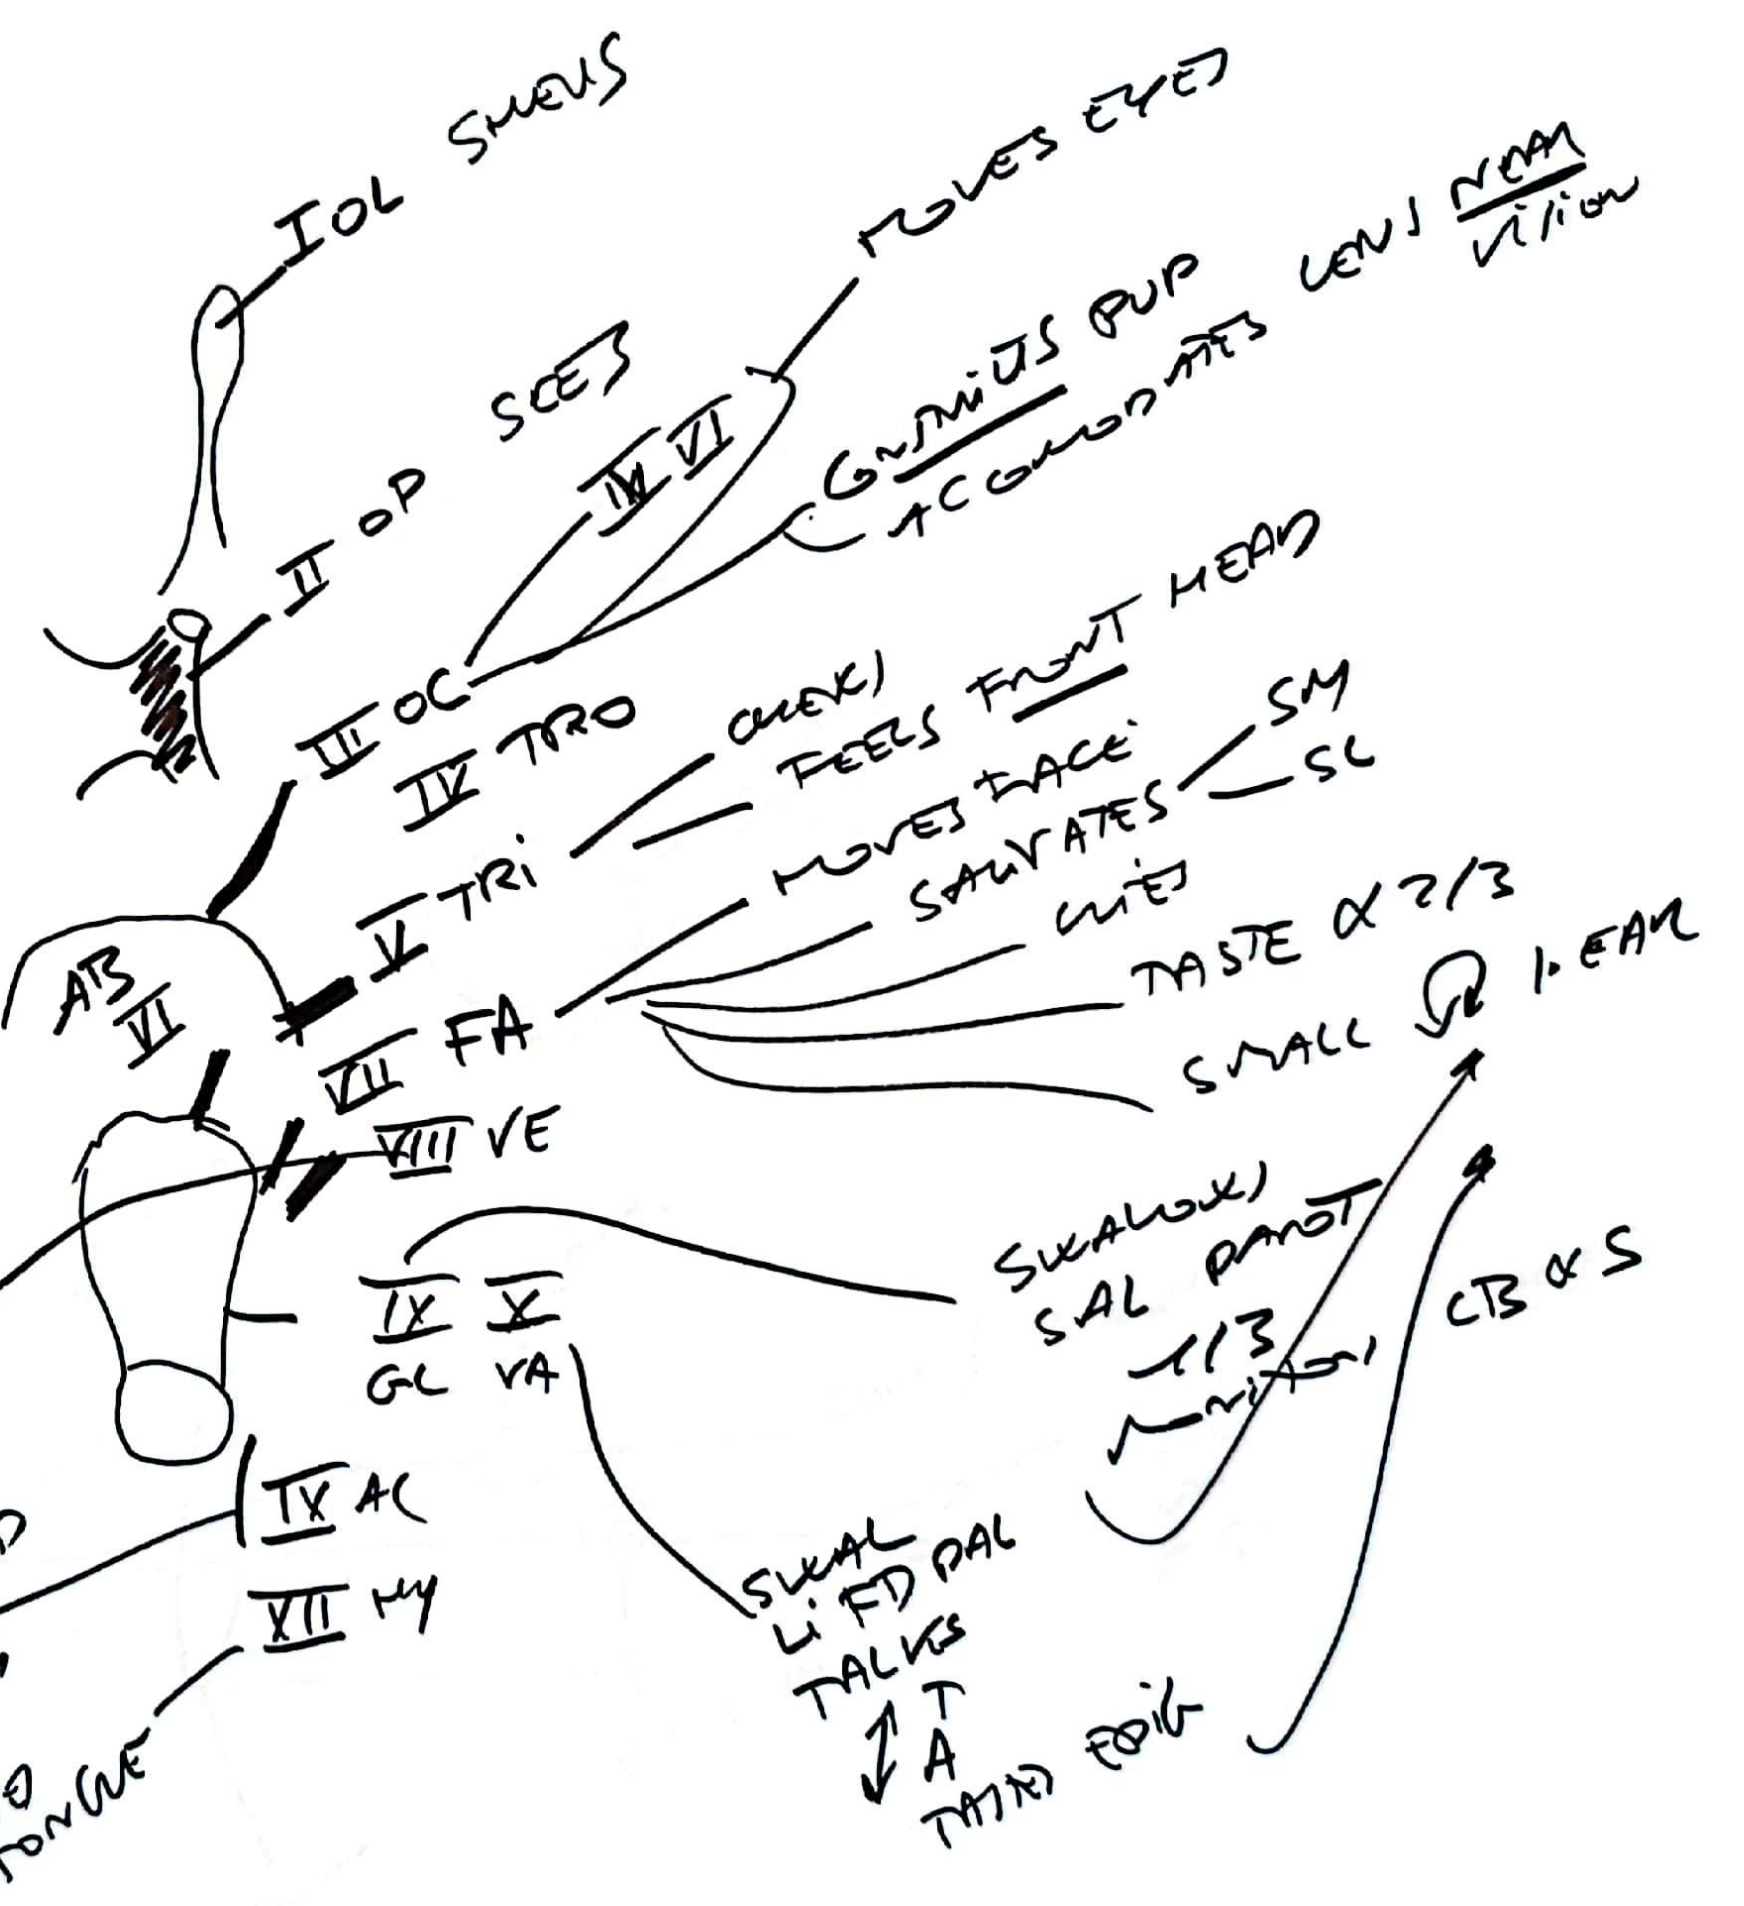 I OL SMELLS
II OP SEES
III OC
IV VI
MOVES EYES
CONSTRICTS PUP
ACCOMODATES LENS NEAR
VISION
IV TRO
V TRI
CHEWS
FEELS FRONT HEAD
AB
VI
VII FA
MOVES FACE
SALIVATES SM
SL
CRIES
TASTE α 2/3
SMALL EAR
VIII VE
IX X
GL VA
SWALLOWS
SAL PAROT
1/3
CB α S
IX AC
XII HY
SWAL
LIFD PAL
TALKES
T
A
TASTES EPIG
TONGUE